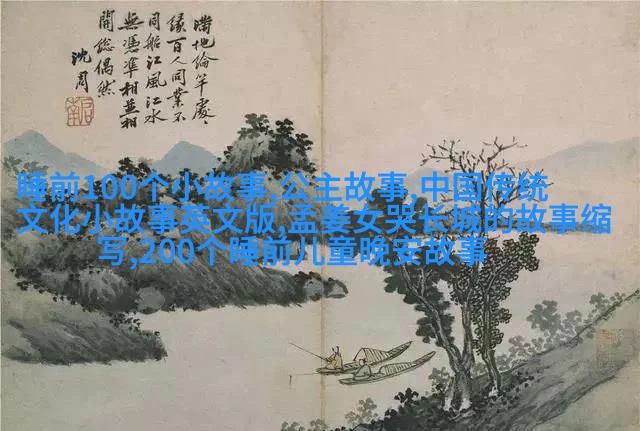 滿地綸竿處〻
緣百人同業不
同船江風江水
無憑準相並相
開總偶然
沈周
睡前100个小故事,公主故事,中国传统
文化小故事英文版,孟姜女哭长城的故事缩
写,200个睡前儿童晚安故事